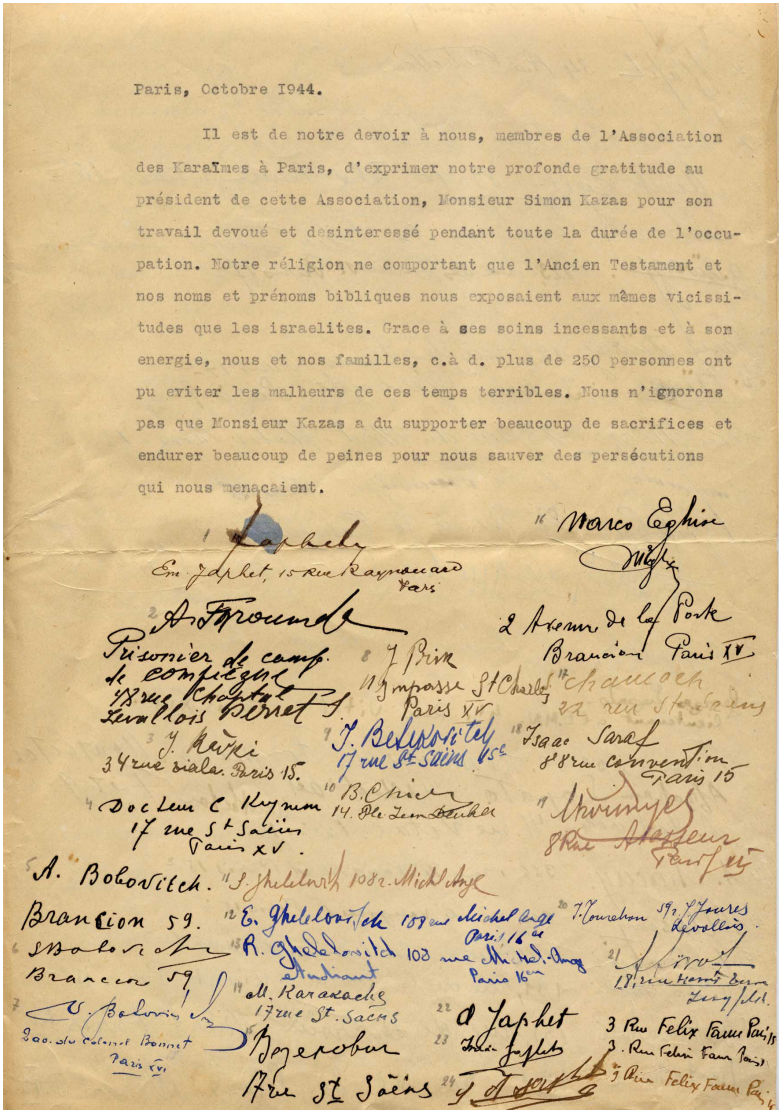 Paris, Octobre 1944.
Il est de notre devoir à nous, membres de l'Association
des Karaïmes à Paris, d'exprimer notre profonde gratitude au
président de cette Association, Monsieur Simon Kazas pour son
travail devoué et desinteressé pendant toute la durée de l'occu-
pation. Notre réligion ne comportant que l'Ancien Testament et
nos noms et prénoms bibliques nous exposaient aux mêmes vicissi-
tudes que les israelites. Grace à ses soins incessants et à son
energie, nous et nos familles, c.à d. plus de 250 personnes ont
pu eviter les malheurs de ces temps terribles. Nous n'ignorons
pas que Monsieur Kazas a du supporter beaucoup de sacrifices et
endurer beaucoup de peines pour nous sauver des persécutions
qui nous menacaient.
1
Em. Japhet, 15 Rue Raynouard
Paris
2
Prisonier de camp.
de Compiègne
48 rue Chaptal
Levallois Perret
3
34 rue Viala. Paris 15.
4 Docteur C
17 rue St Saëns
Paris XV.
5 A. Bobovitch.
Brancion 59.
6
Brancion 59
7
2 ao. du Colonel Bonnet
Paris XVI
8
11 Impasse St Charles
Paris XV
9
17 rue St Saëns 15e
10
14.
11 S. Ghelelovitch 108 r. Michl Ange
12 E. Ghelelovitch 108 rue Michel Ange
Paris 16
13 R. Ghelelovitch 108 rue Michel-Ange
etudiant Paris 16
14 M. Karakache
17 rue St. Saëns
15
17 rue St Saëns
16 Marco
2 Avenue de la Porte
Brancion Paris XV
17
22 rue St Saëns
18 Isaac Saraf
88 rue convention
Paris 15
19
8 Rue
Paris
20
Levallois
21
18, rue
22 Japhet 3 Rue Felix Faure Paris
23 Japhet 3. Rue Felix Faure Paris
24 3 Rue Felix Faure Paris